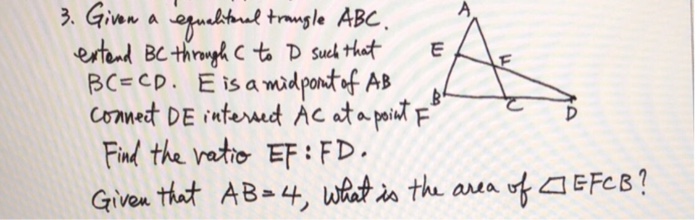 3. Given a equaliteral traingle ABC.
extend BC through C to D such that
BC=CD. E is a midpoint of AB
Connect DE intersect AC at a point F
Find the ratio EF:FD.
Given that AB=4, What is the area of ▱EFCB?
A
E
F
B
C
D